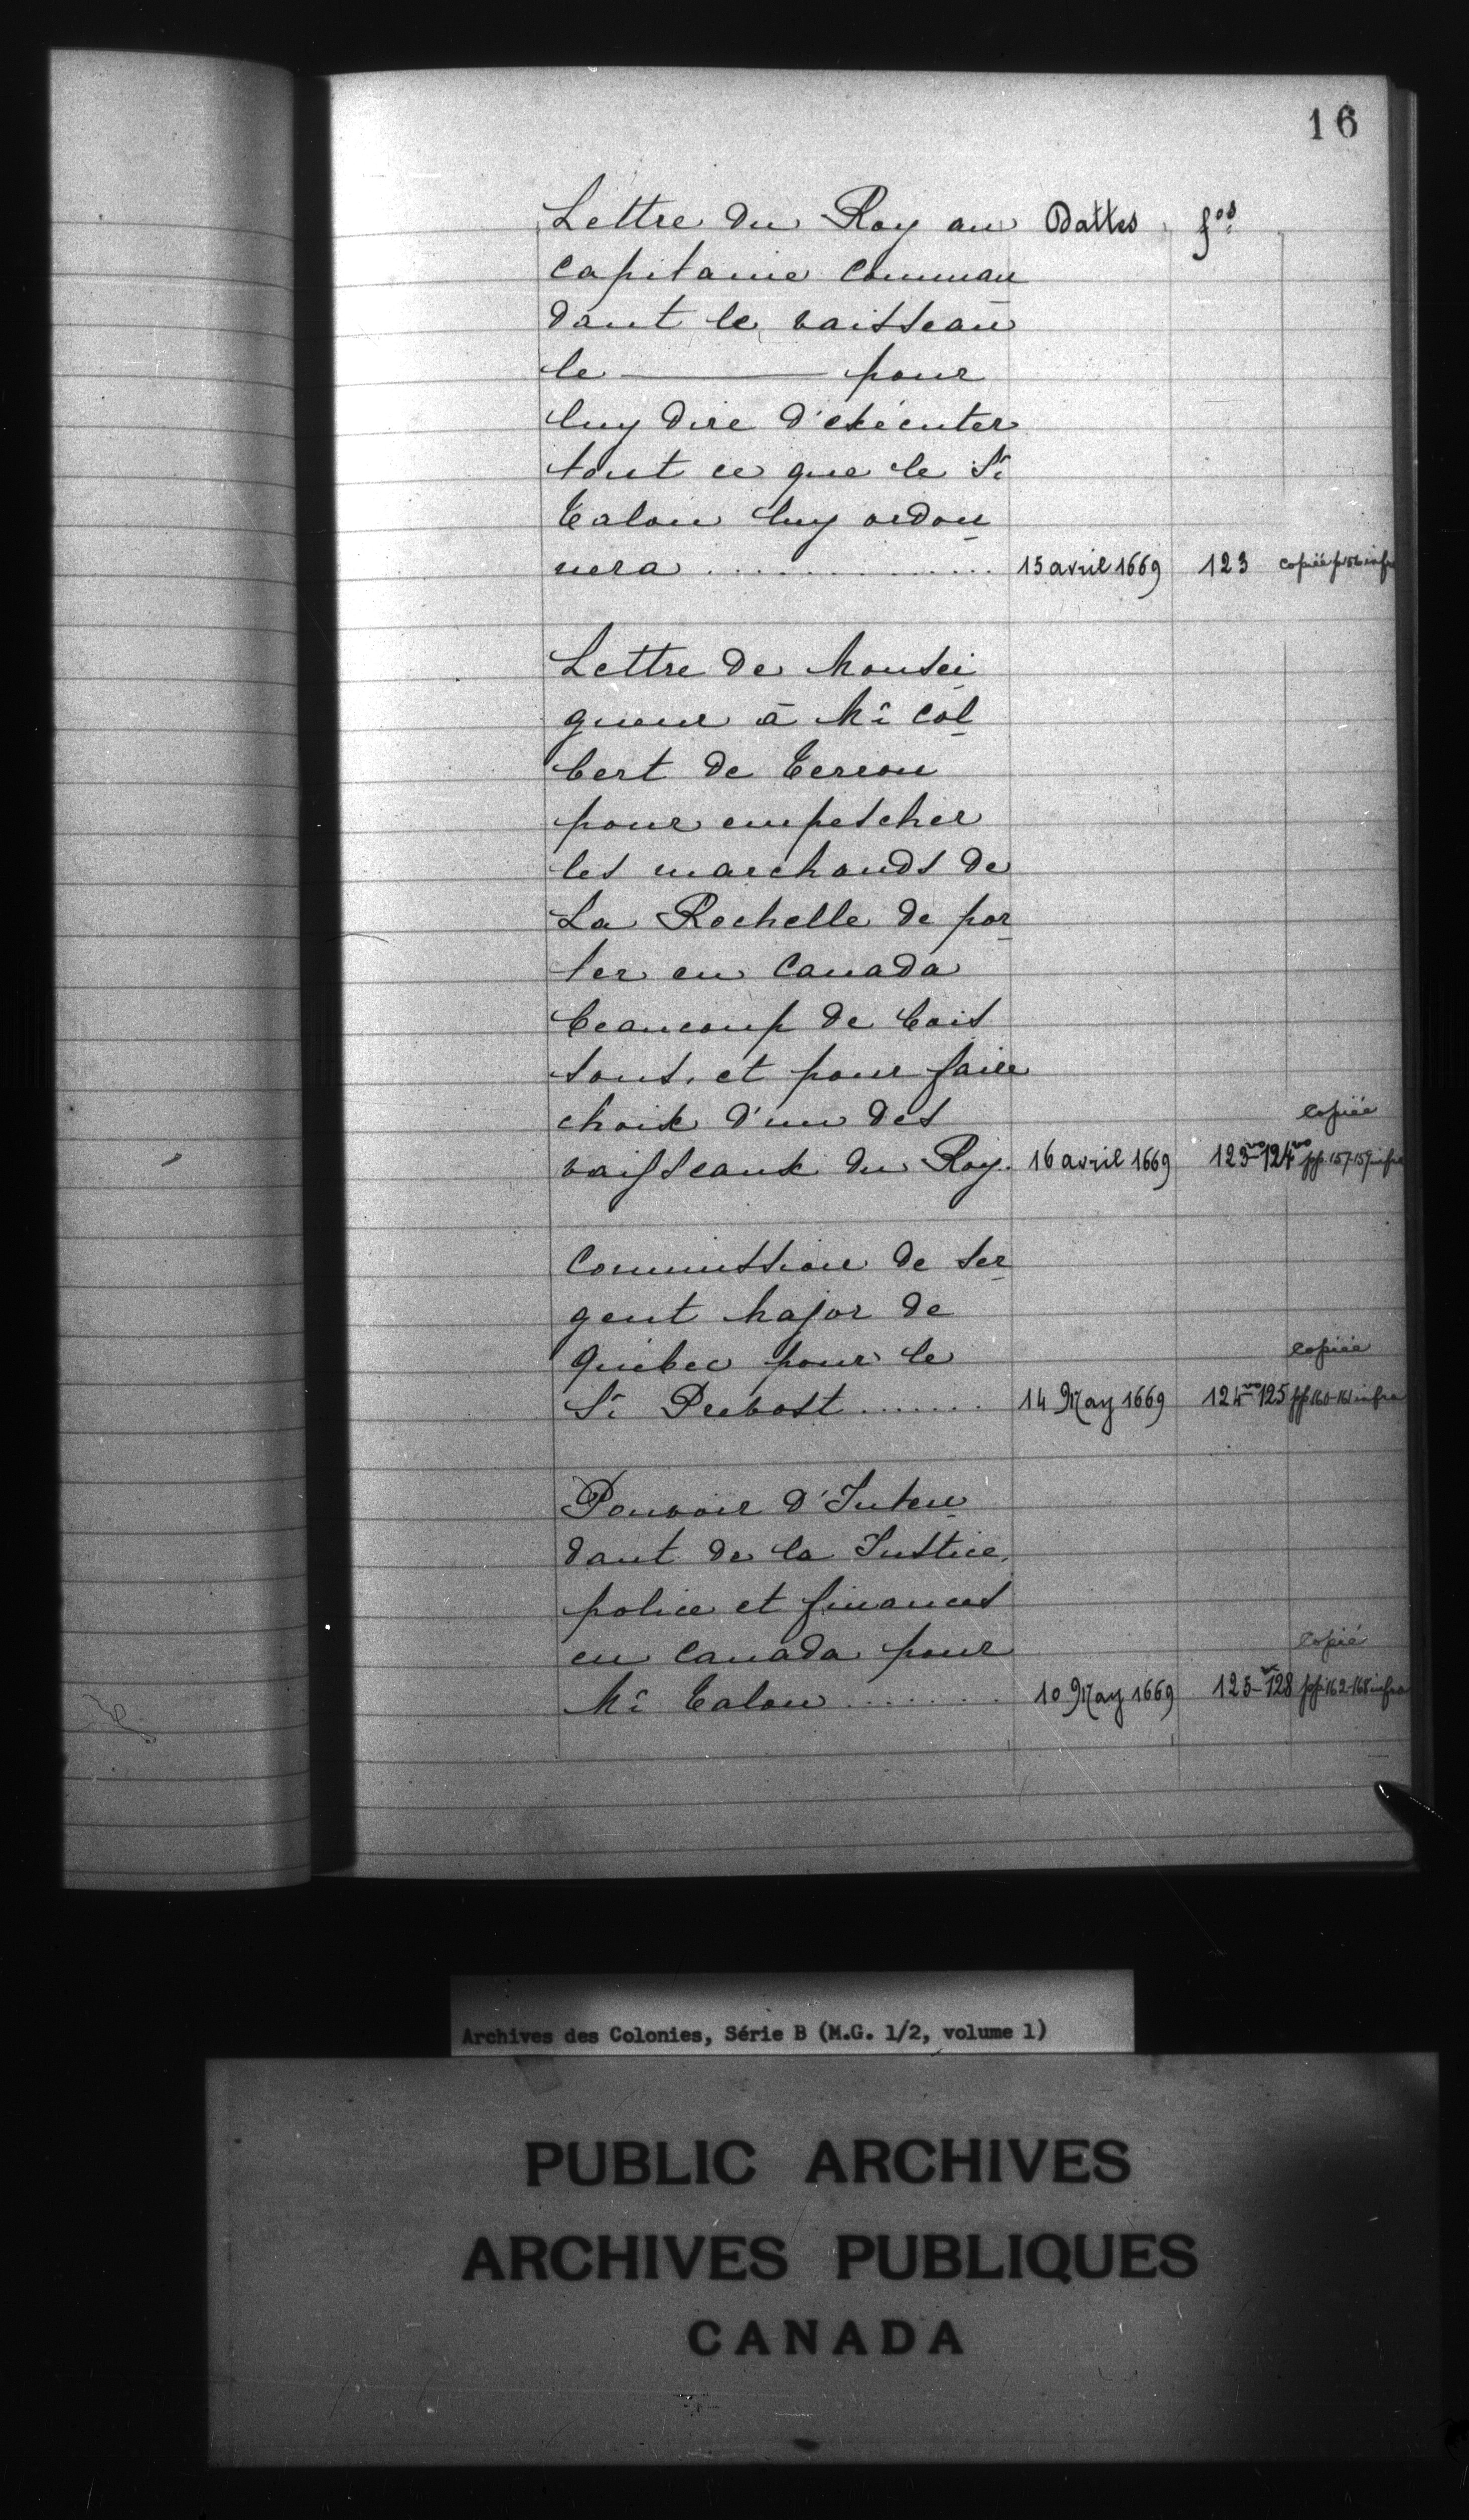 16
Lettre du Roy au Dattes fos
Capitaine Comman
dant le vaisseau
le ——— pour
luy dire d'exécuter
tout ce que le Sr
Talon luy ordon
nera ............... 15 avril 1669 123 copiée p 156 infra
Lettre de Monsei
gneur à Mr Col
bert de Terron
pour empescher
les marchands de
La Rochelle de por
ter en Canada
beaucoup de bois
sons, et pour faire
choix d'un des copiée
vaisseaux du Roy. 16 avril 1669 123vo-124vo pp. 157-159 infra
Commission de Ser
gent Major de
Québec pour le copiée
Sr Prevost ....... 14 May 1669 124vo-125 pp 160-161 infra
Pouvoir d'Inten
dant de la Justice,
police et finances
en Canada pour copié
Mr Talon ........ 10 May 1669 125-128 pp 162-168 infra
Archives des Colonies, Série B (M.G. 1/2, volume 1)
PUBLIC ARCHIVES
ARCHIVES PUBLIQUES
CANADA